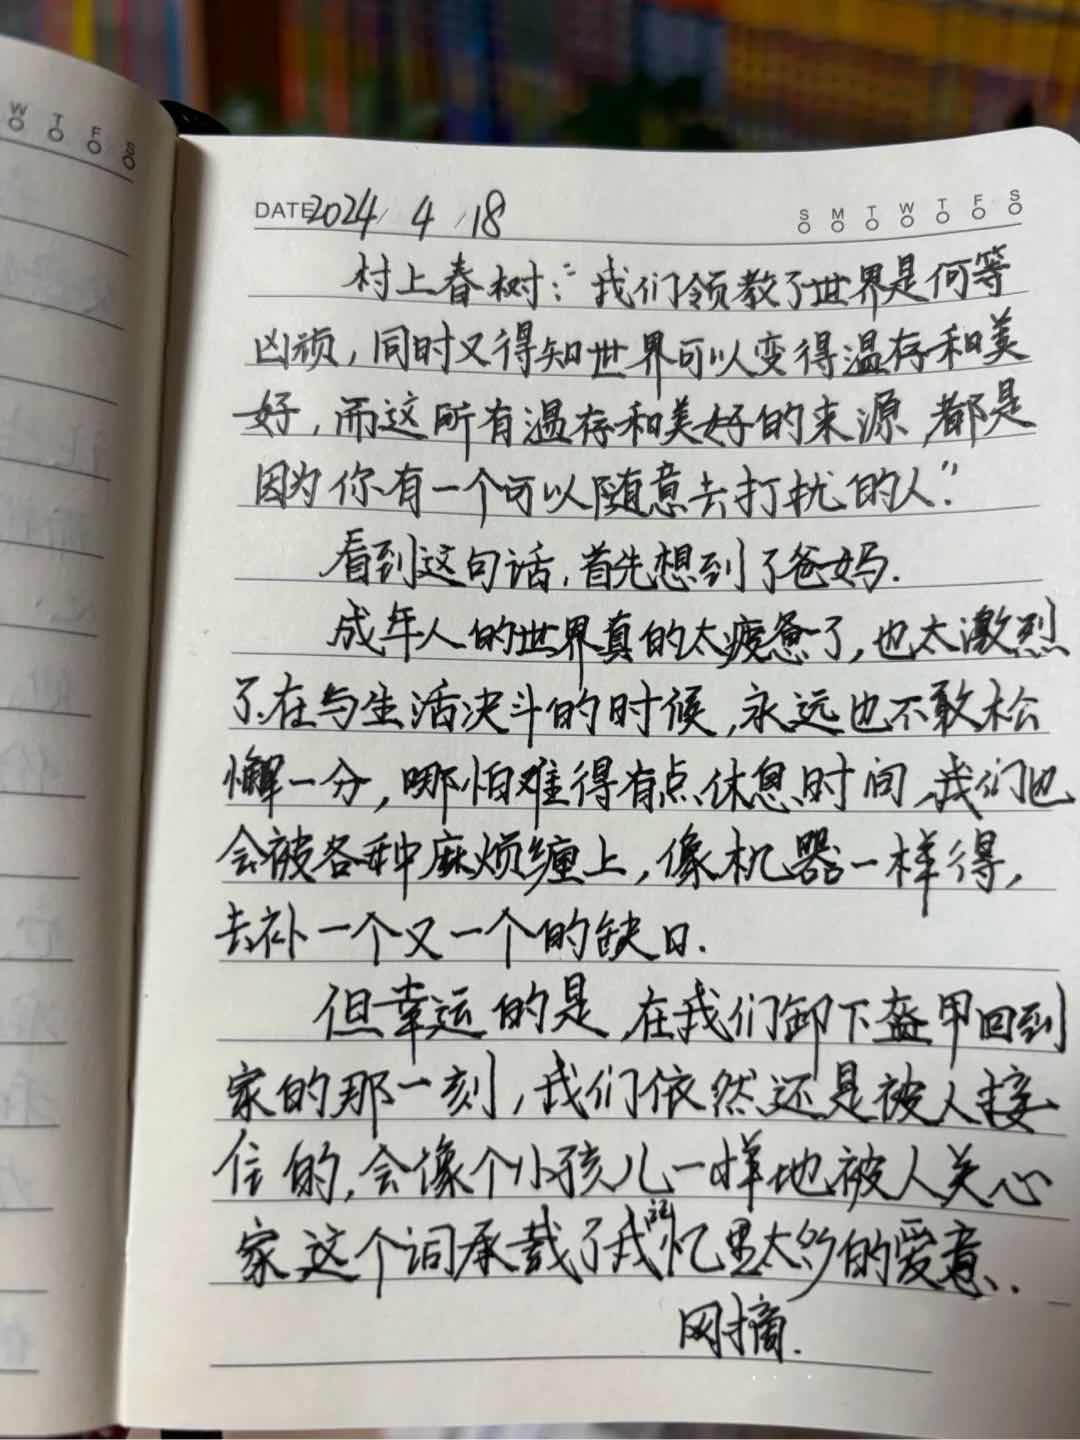 W T F S
DATE 2024/ 4 /18
S M T W T F S
村上春树："我们领教了世界是何等
凶顽，同时又得知世界可以变得温存和美
好，而这所有温存和美好的来源，都是
因为你有一个可以随意去打扰的人。"
看到这句话，首先想到了爸妈.
成年人的世界真的太疲惫了，也太激烈
了.在与生活决斗的时候，永远也不敢松
懈一分，哪怕难得有点休息时间，我们也
会被各种麻烦缠上，像机器一样得，
去补一个又一个的缺口.
但幸运的是，在我们卸下盔甲回到
家的那一刻，我们依然还是被人接
住的，会像个小孩儿一样地被人关心
家这个词承载了我记忆里太多的爱意.
网摘.